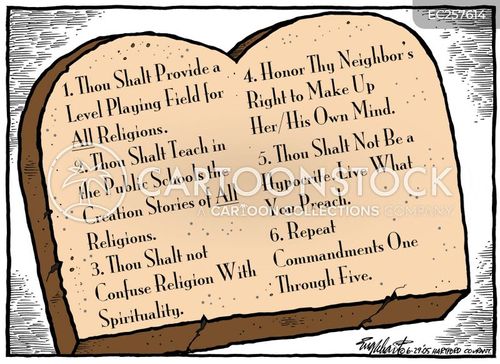 EC257614
1. Thou Shalt Provide a
Level Playing Field for
All Religions.
2. Thou Shalt Teach in
the Public Schools the
Creation Stories of All
Religions.
3. Thou Shalt not
Confuse Religion With
Spirituality.
4. Honor Thy Neighbor's
Right to Make Up
Her/His Own Mind.
5. Thou Shalt Not Be a
Hypocrite. Live What
You Preach.
6. Repeat
Commandments One
Through Five.
CARTOONSTOCK
A CARTOON COLLECTIONS COMPANY
Englehart 6-29-05 HARTFORD COURANT